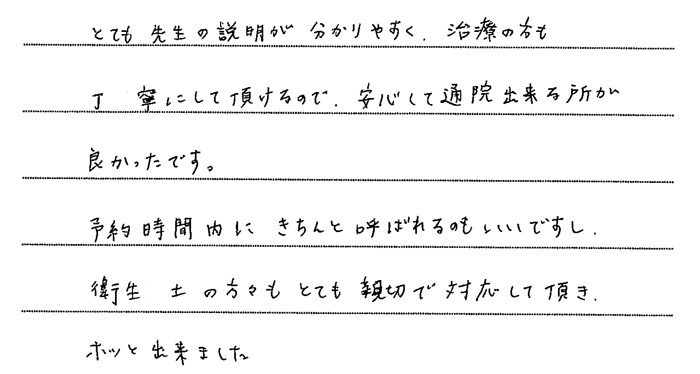 とても先生の説明が分かりやすく、治療の方も
丁寧にして頂けるので、安心して通院出来る所が
良かったです。
予約時間内にきちんと呼ばれるのもいいですし、
衛生士の方々もとても親切で対応して頂き、
ホッと出来ました